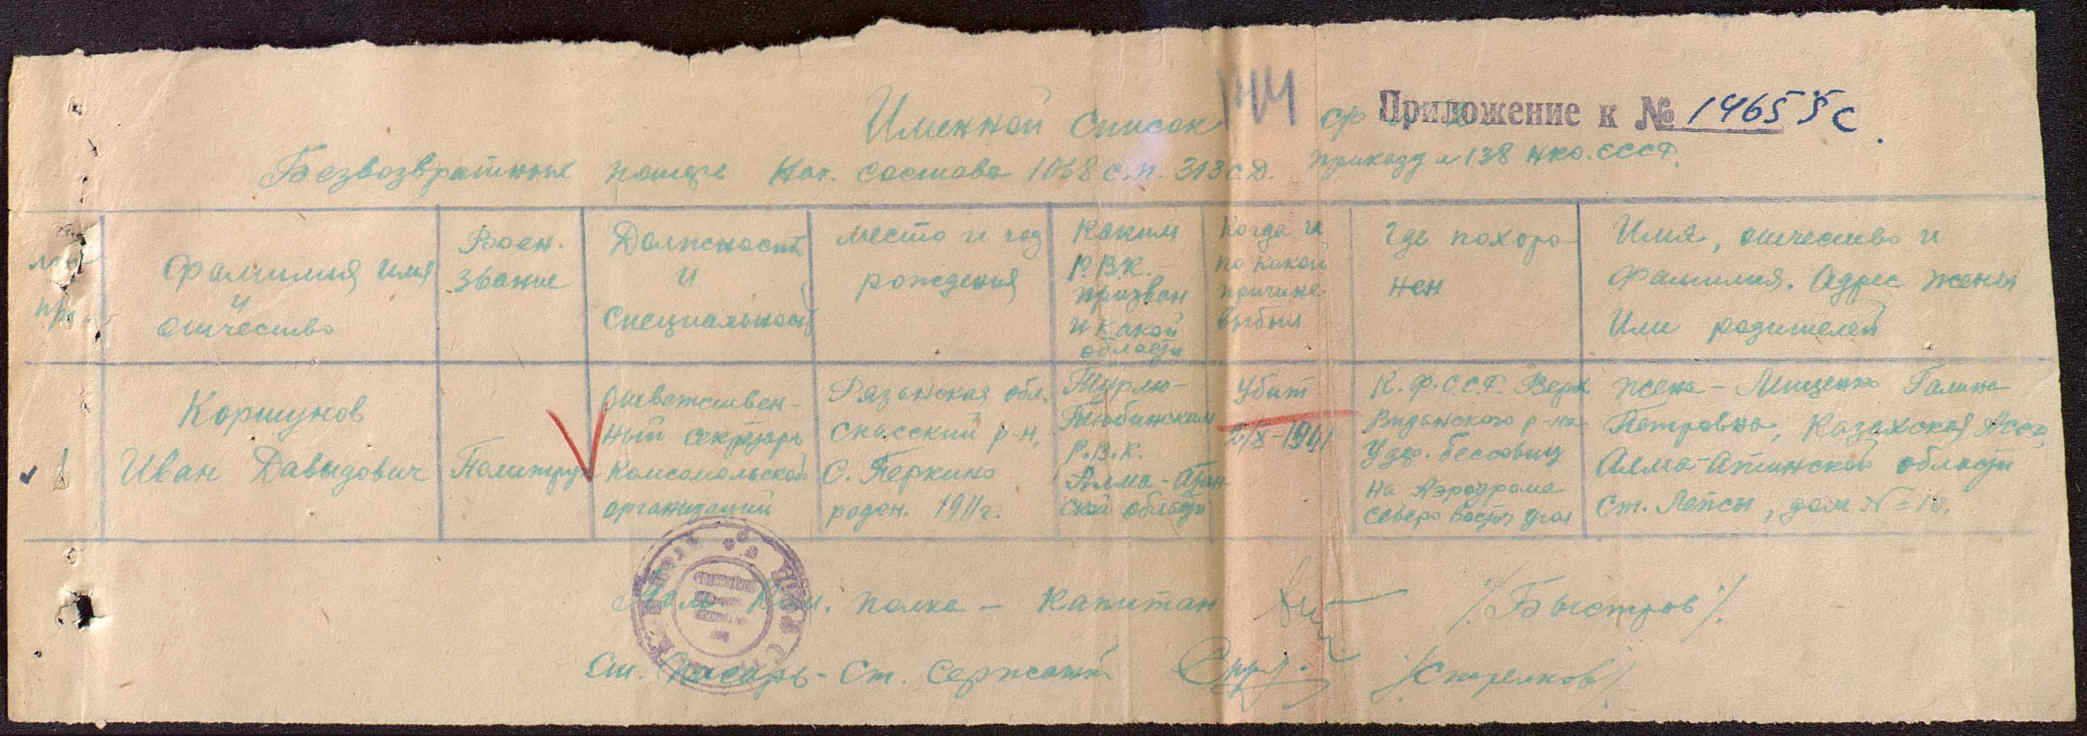 Именной список
Приложение к № 14655с.
Безвозвратных потерь Нач. состава 1068 с.п. 313 с.Д. приказу № 138 НКО. СССР.
Фамилия имя
и
отчество
Воен.
звание
Должность
и
Специальность
место и год
рождения
Каким
Р.В.К.
призван
и какой
области
Когда и
по какой
причине
выбыл
Где похоро-
нен
Имя, отчество и
Фамилия. Адрес жены
Или родителей
1
Коршунов
Иван Давыдович
Политрук
Ответствен-
ный секретарь
Комсомольской
организации
Рязанская обл.
Спасский р-н,
С. Перкино
рожден. 1911 г.
Турлю-
Тюбинским
Р.В.К.
Алма-Атин-
ской области
Убит
X-1941
К.Ф.ССР. Верх
Видлинского р-на
У дер.
на Аэродроме
северо восточ угол
Жена - Мищенко Галина
Петровна, Казахская АССР,
Алма-Атинской области
Ст. Лепсы, дом №
полка - Капитан /Быстров/.
Ст. Писарь - Ст. Сержант /Стрелков/